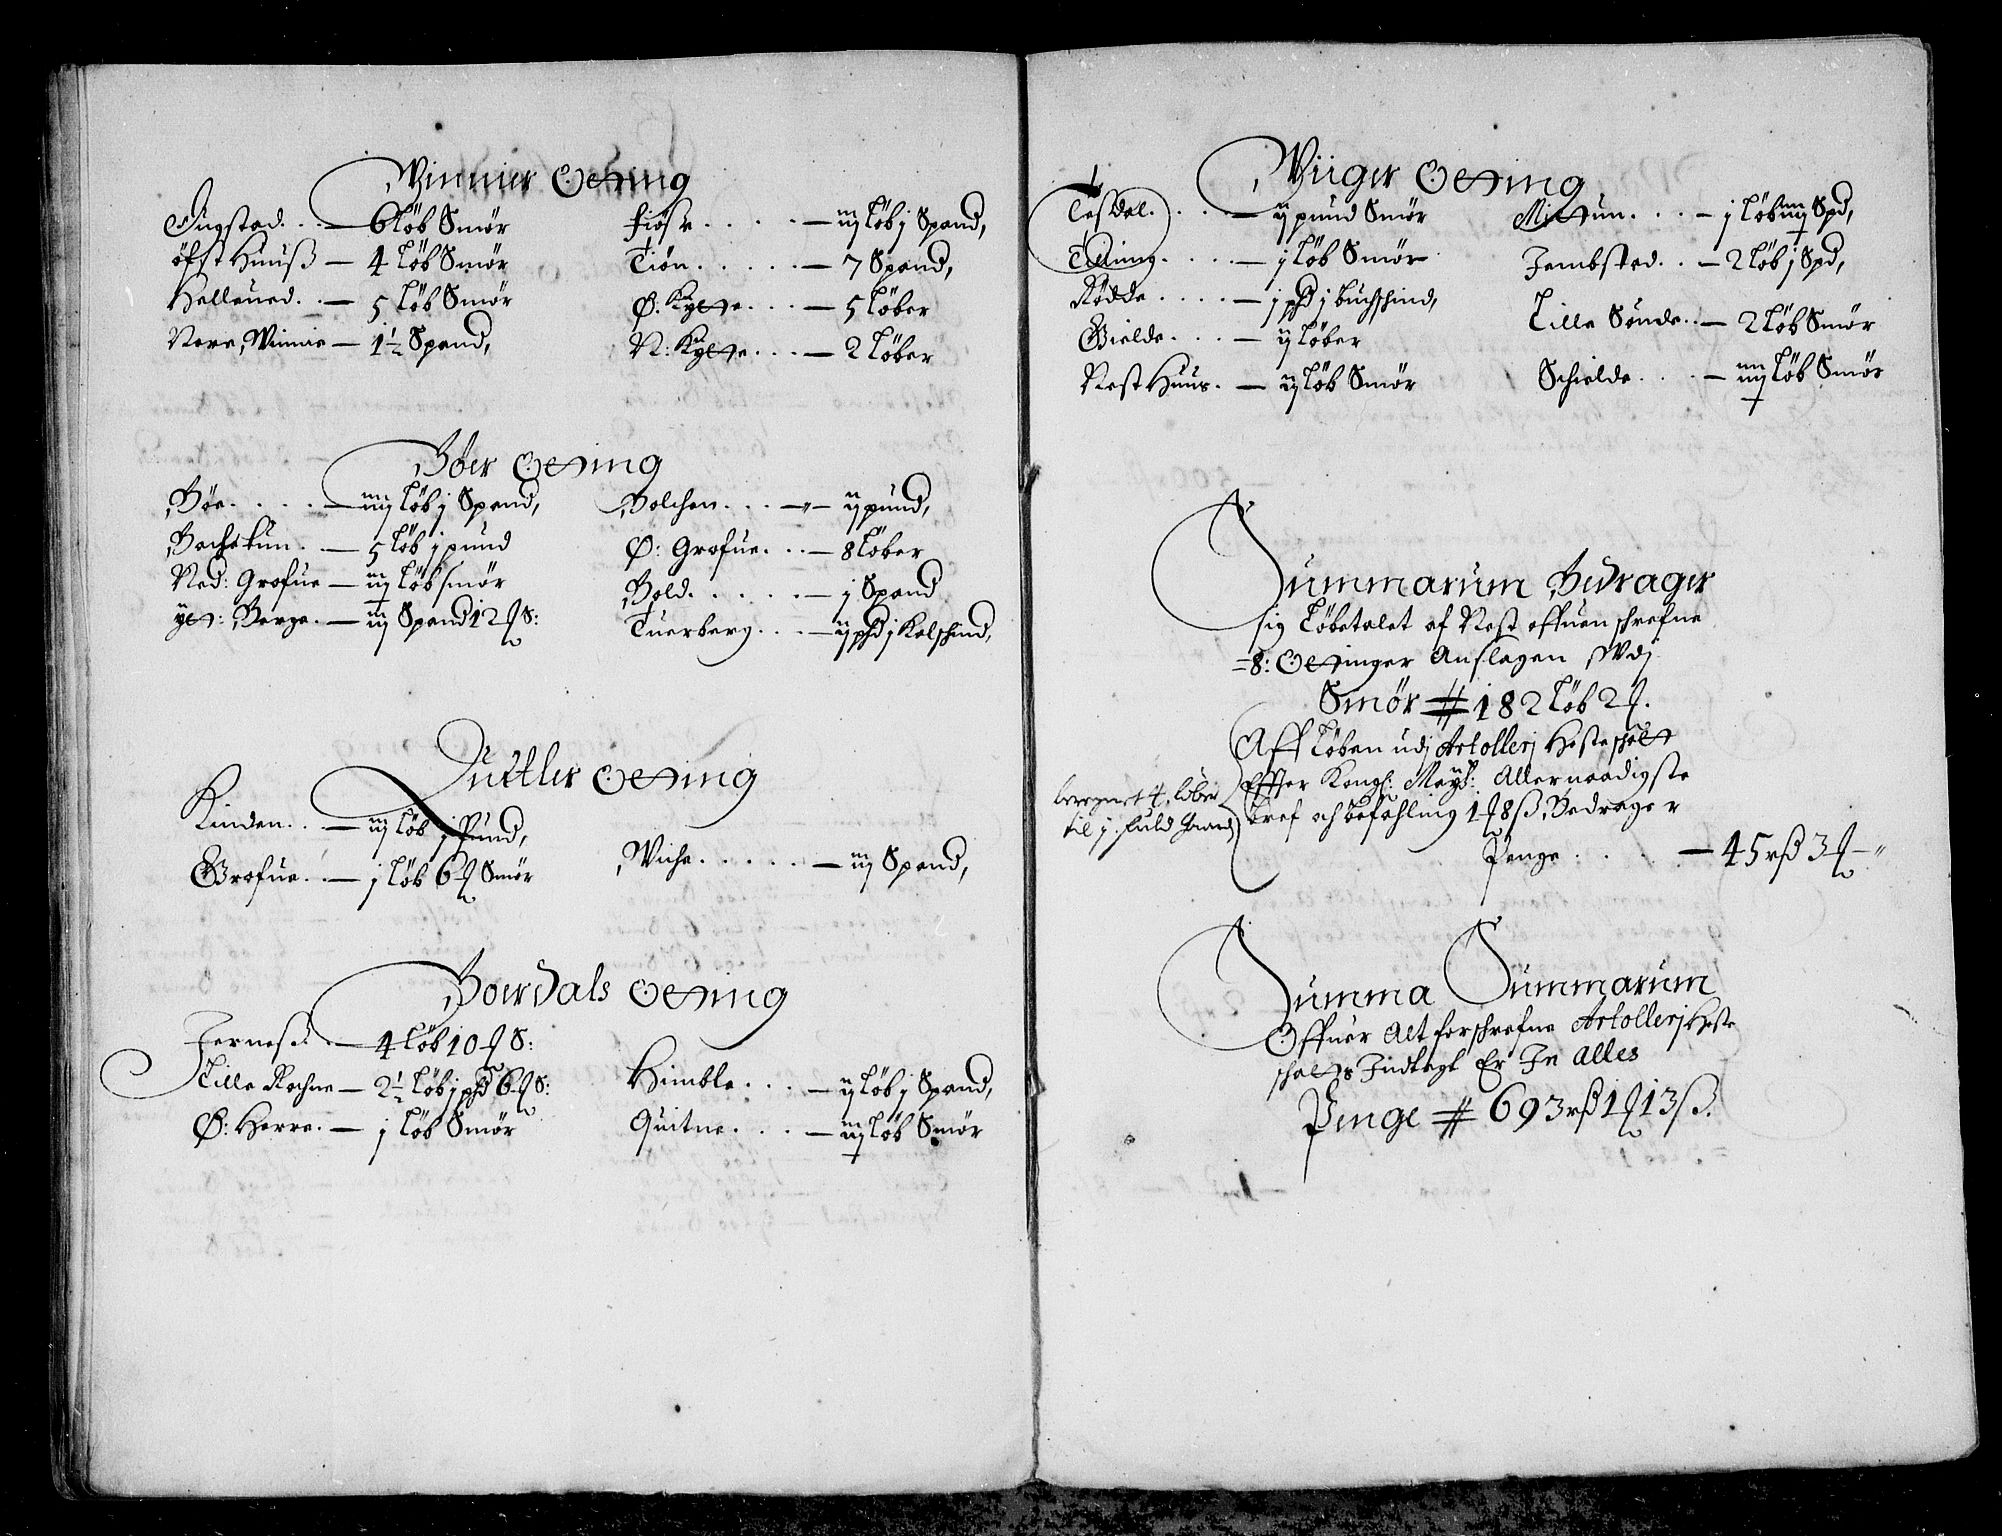 Winnier Otting
Ringstad. . . — 6 löb Smör
öfst Huuß — 4 löb Smör
Helleued. . — 5 löb Smör
Nere, Winnie — 1½ Spand,
Fiöse . . . . — iij löb j Spand,
Tiön. . . . . — 7 Spand,
Ø: Kytte. . . — 5 löber
N: Kytte. . . — 2 löber
Böer Otting
Böe. . . . — iiij löb j Spand,
Bachetun. . — 5 löb j pund
Ned: Grofue — iij löb smör
yt: Berge. — iij Spand 12 ₰ S:
Bolchen. . . . — ij pund,
Ø: Grofue. . . — 8 löber
Bold. . . . . — j Spand
Tuerberg. . . — ij phd j Kalschind,
Quitler Otting
Kinden. . — iij löb j Pund,
Grofue. . — j löb 6 ₰ Smör
Wiche. . . . . — iij Spand,
Boerdals Otting
Jerneß. . — 4 löb 10 ₰ S:
Lille Rochne — 2½ löb j phd 6 ₰ S:
Ø: Herre. — j löb Smör
Himble. . . — ij löb j Spand,
Quitne. . . — iij löb Smör
Wiiger Otting
Tesdal. . . . — ij pund Smör
Titing. . . . — j löb Smör
Rödde . . . . — j phd j buchschind,
Gielde. . . . — ij löber
Nesthuus. — ij löb Smör
Mittun. . . . — j löb iiij Spd,
Jembsted. . — 2 löb j Spd,
Lille Sønde. . — 2 löb Smör
Schielde. . . . — iiij löb Smör
Summarum Bedrager
sig Löbetalet af Nest offuen schrefne
=8: Ottinger Anslagen, Udj
Smör # 182 löb 2 ₰.
Aff Löben udj Artollerj Hesteschatt
Effter Kongl: Mayts: Allernaadigste
bref och befahling 1 ₰ 8 ß, Bedrager
Penge . . . . — 45 rß 3 ₰ — "
beregnet 4. löber
til j. fuld gaard
Summa Summarum
Offuer Alt forschrefne Artollerj Heste
schatts Indtegt Er In Alles
Penge # 693 rß 1 ₰ 13 ß.